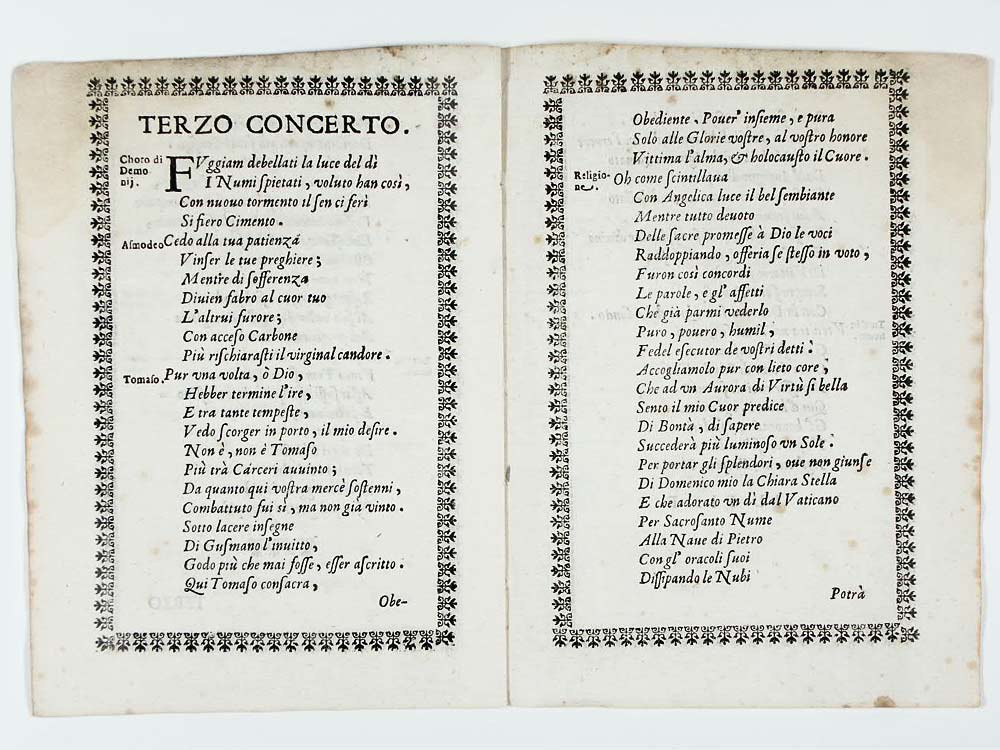 TERZO CONCERTO.
Choro di Demo nij. FVggiam debellati la luce del dì
I Numi spietati, voluto han così,
Con nuouo tormento il sen ci ferì
Si fiero Cimento.
Asmodeo Cedo alla tua patienza
Vinser le tue preghiere;
Mentre di sofferenza
Diuien fabro al cuor tuo
L'altrui furore;
Con acceso Carbone
Più rischiarasti il virginal candore.
Tomaso. Pur vna volta, ò Dio,
Hebber termine l'ire,
E tra tante tempeste,
Vedo scorger in porto, il mio desire.
Non è, non è Tomaso
Più trà Cárceri auuinto;
Da quanto quì vostra mercè sostenni,
Combattuto fui sì, ma non già vinto.
Sotto lacere insegne
Di Gusmano l'inuitto,
Godo più che mai fosse, esser ascritto.
Qui Tomaso consacra,
Obe-
Obediente, Pouer' insieme, e pura
Solo alle Glorie vostre, al vostro honore
Vittima l'alma, & holocausto il Cuore.
Religione. Oh come scintillaua
Con Angelica luce il bel sembiante
Mentre tutto deuoto
Delle sacre promesse à Dio le voci
Raddoppiando, offeria se stesso in voto,
Furon così concordi
Le parole, e gl' affetti
Che già parmi vederlo
Puro, pouero, humil,
Fedel esecutor de vostri detti.
Accogliamolo pur con lieto core,
Che ad vn Aurora di Virtù si bella
Sento il mio Cuor predice
Di Bontà, di sapere
Succederà più luminoso vn Sole.
Per portar gli splendori, oue non giunse
Di Domenico mio la Chiara Stella
E che adorato vn dì dal Vaticano
Per Sacrosanto Nume
Alla Naue di Pietro
Con gl' oracoli suoi
Dissipando le Nubi
Potrà